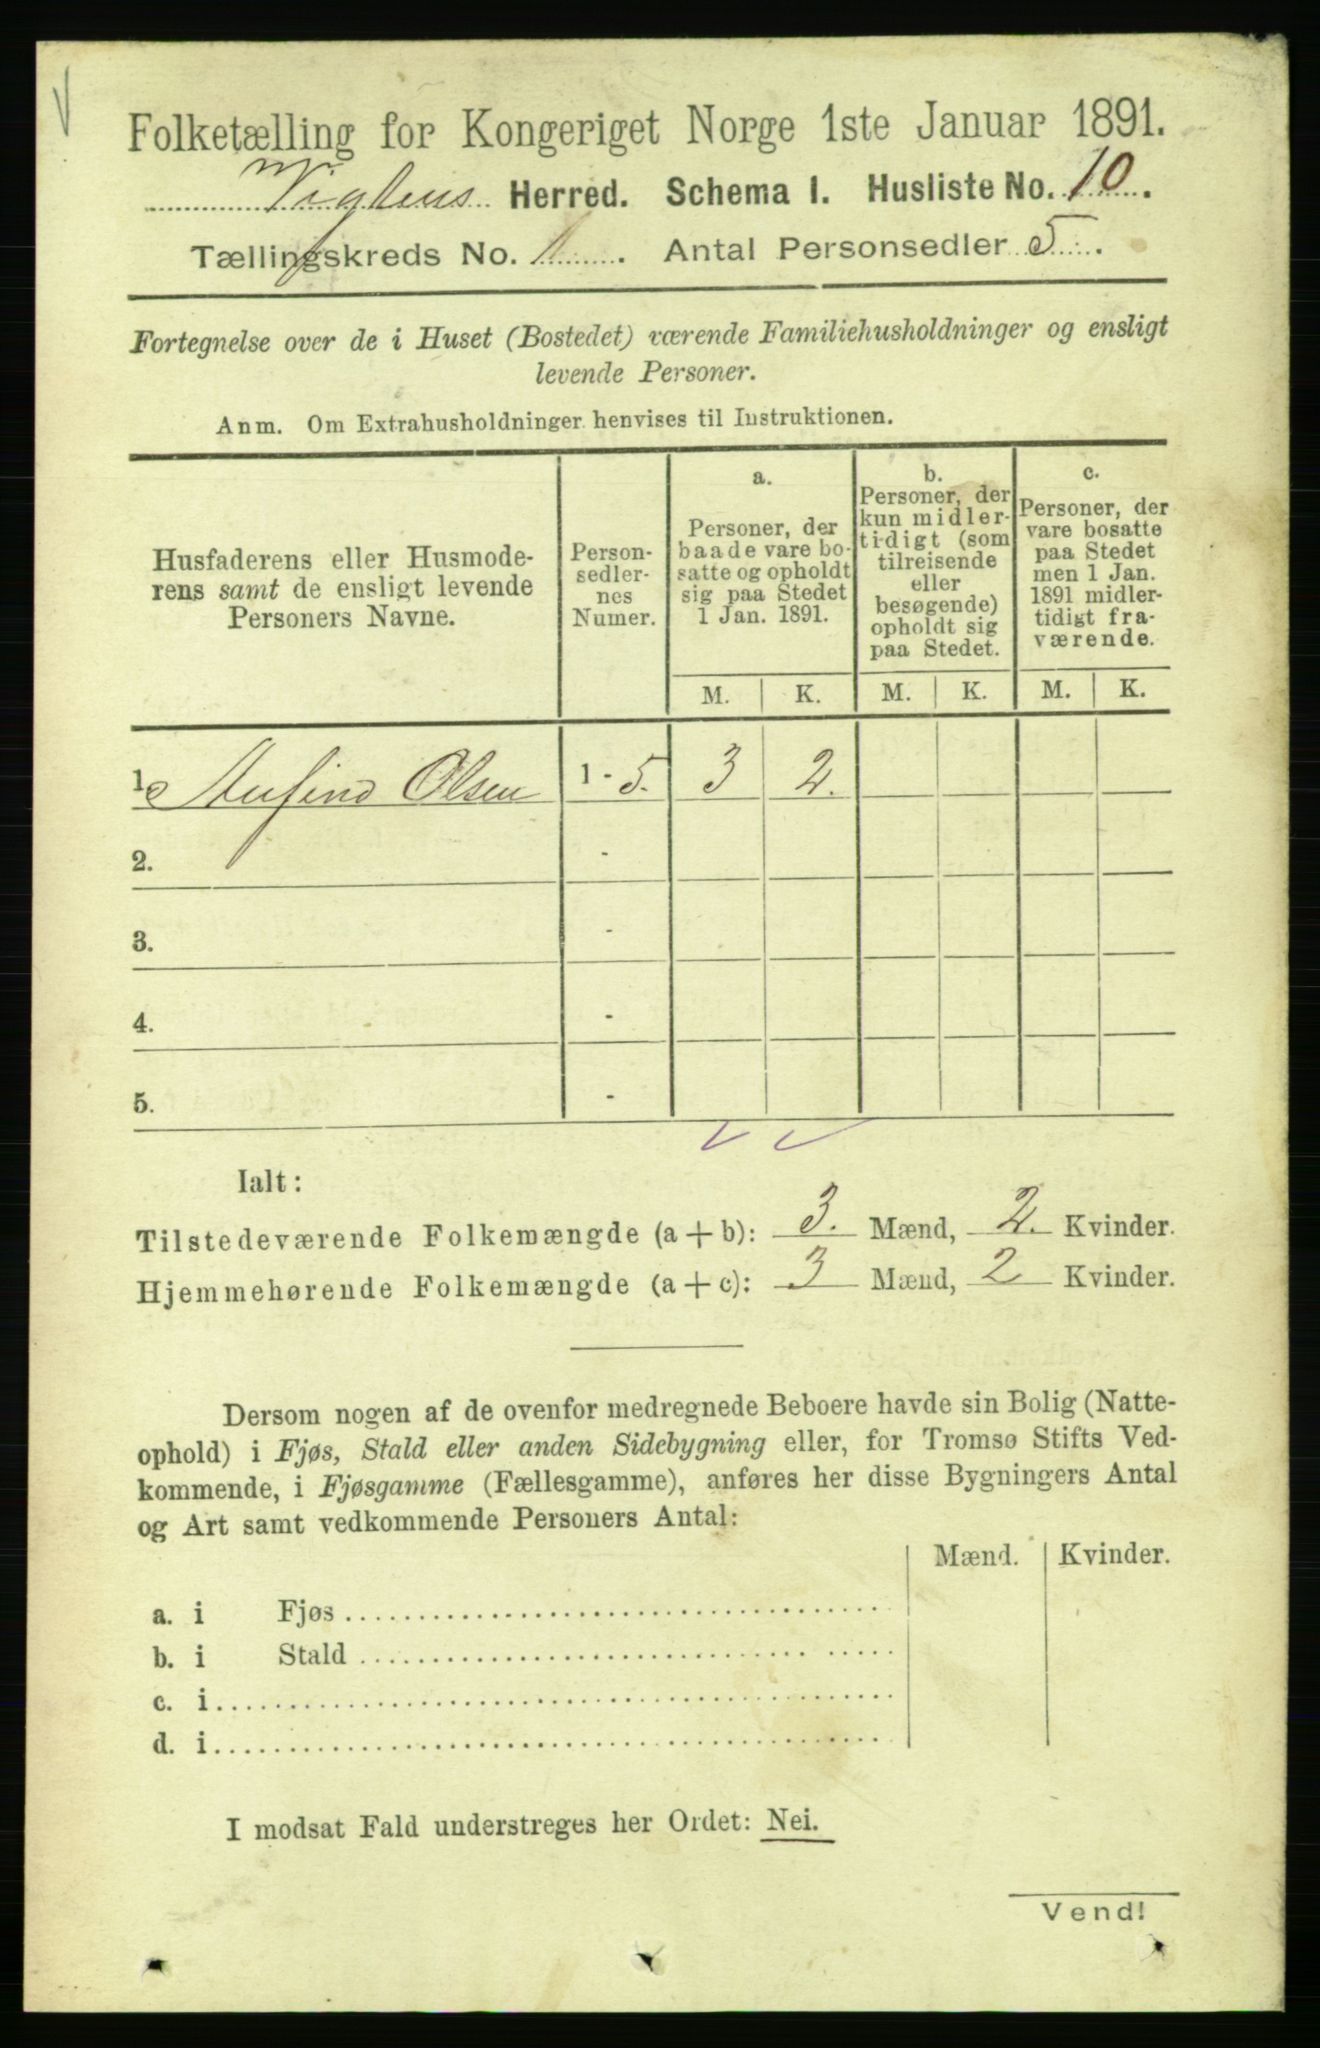 Folketælling for Kongeriget Norge 1ste Januar 1891.
Vigtens Herred. Schema I. Husliste No. 10.
Tællingskreds No. 1. Antal Personsedler 5.
Fortegnelse over de i Huset (Bostedet) værende Familiehusholdninger og ensligt
levende Personer.
Anm. Om Extrahusholdninger henvises til Instruktionen.
Husfaderens eller Husmode-
rens samt de ensligt levende
Personers Navne.
Person-
sedler-
nes
Numer.
a.
Personer, der
baade vare bo-
satte og opholdt
sig paa Stedet
1 Jan. 1891.
b.
Personer, der
kun midler-
tidigt (som
tilreisende
eller
besøgende)
opholdt sig
paa Stedet.
c.
Personer, der
vare bosatte
paa Stedet
men 1 Jan.
1891 midler-
tidigt fra-
værende.
M. K. M. K. M. K.
1. Anfind Olsen 1 - 5. 3 2.
2. -
3. -
4. -
5. -
Ialt:
Tilstedeværende Folkemængde (a + b): 3. Mænd, 2. Kvinder.
Hjemmehørende Folkemængde (a + c): 3 Mænd, 2 Kvinder.
Dersom nogen af de ovenfor medregnede Beboere havde sin Bolig (Natte-
ophold) i Fjøs, Stald eller anden Sidebygning eller, for Tromsø Stifts Ved-
kommende, i Fjøsgamme (Fællesgamme), anføres her disse Bygningers Antal
og Art samt vedkommende Personers Antal:
Mænd. Kvinder.
a. i Fjøs
b. i Stald
c. i
d. i
I modsat Fald understreges her Ordet: Nei.
Vend!